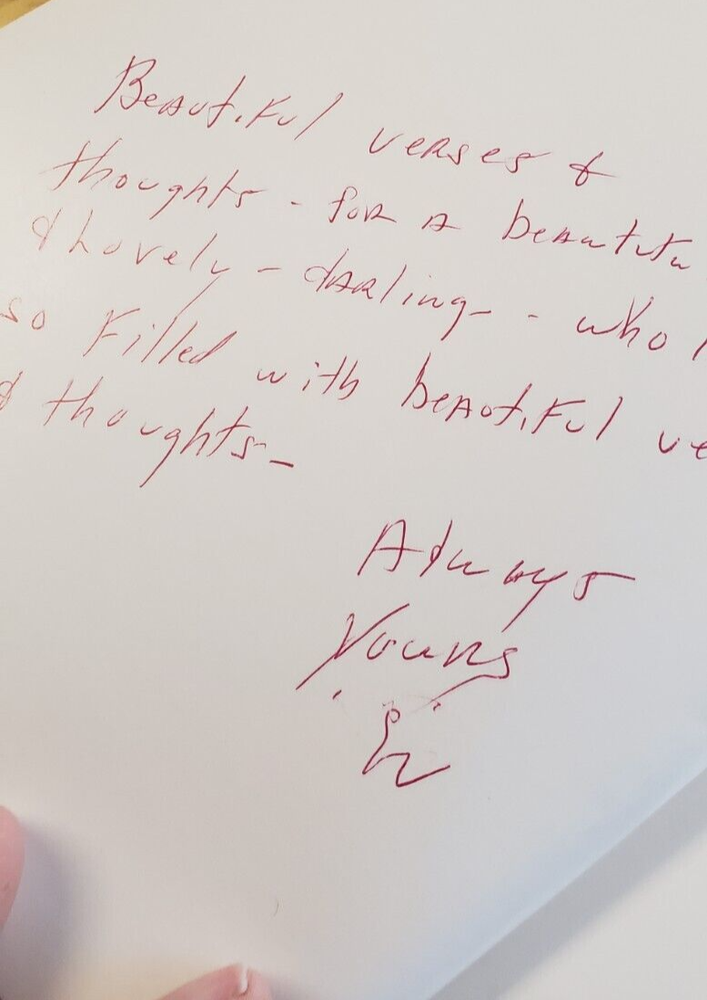 Beautiful verses &
thoughts - for a beautifu
& Lovely - darling - who i
so filled with beautiful ve
& thoughts -
Always
Yours